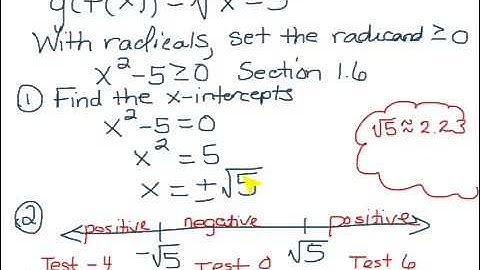 g(f(x)) = √x² - 5
With radicals, set the radicand ≥ 0
x² - 5 ≥ 0 Section 1.6
① Find the x-intercepts
x² - 5 = 0
x² = 5
x = ± √5
√5 ≈ 2.23
②
positive negative positive
-√5 √5
Test -4 Test 0 Test 6